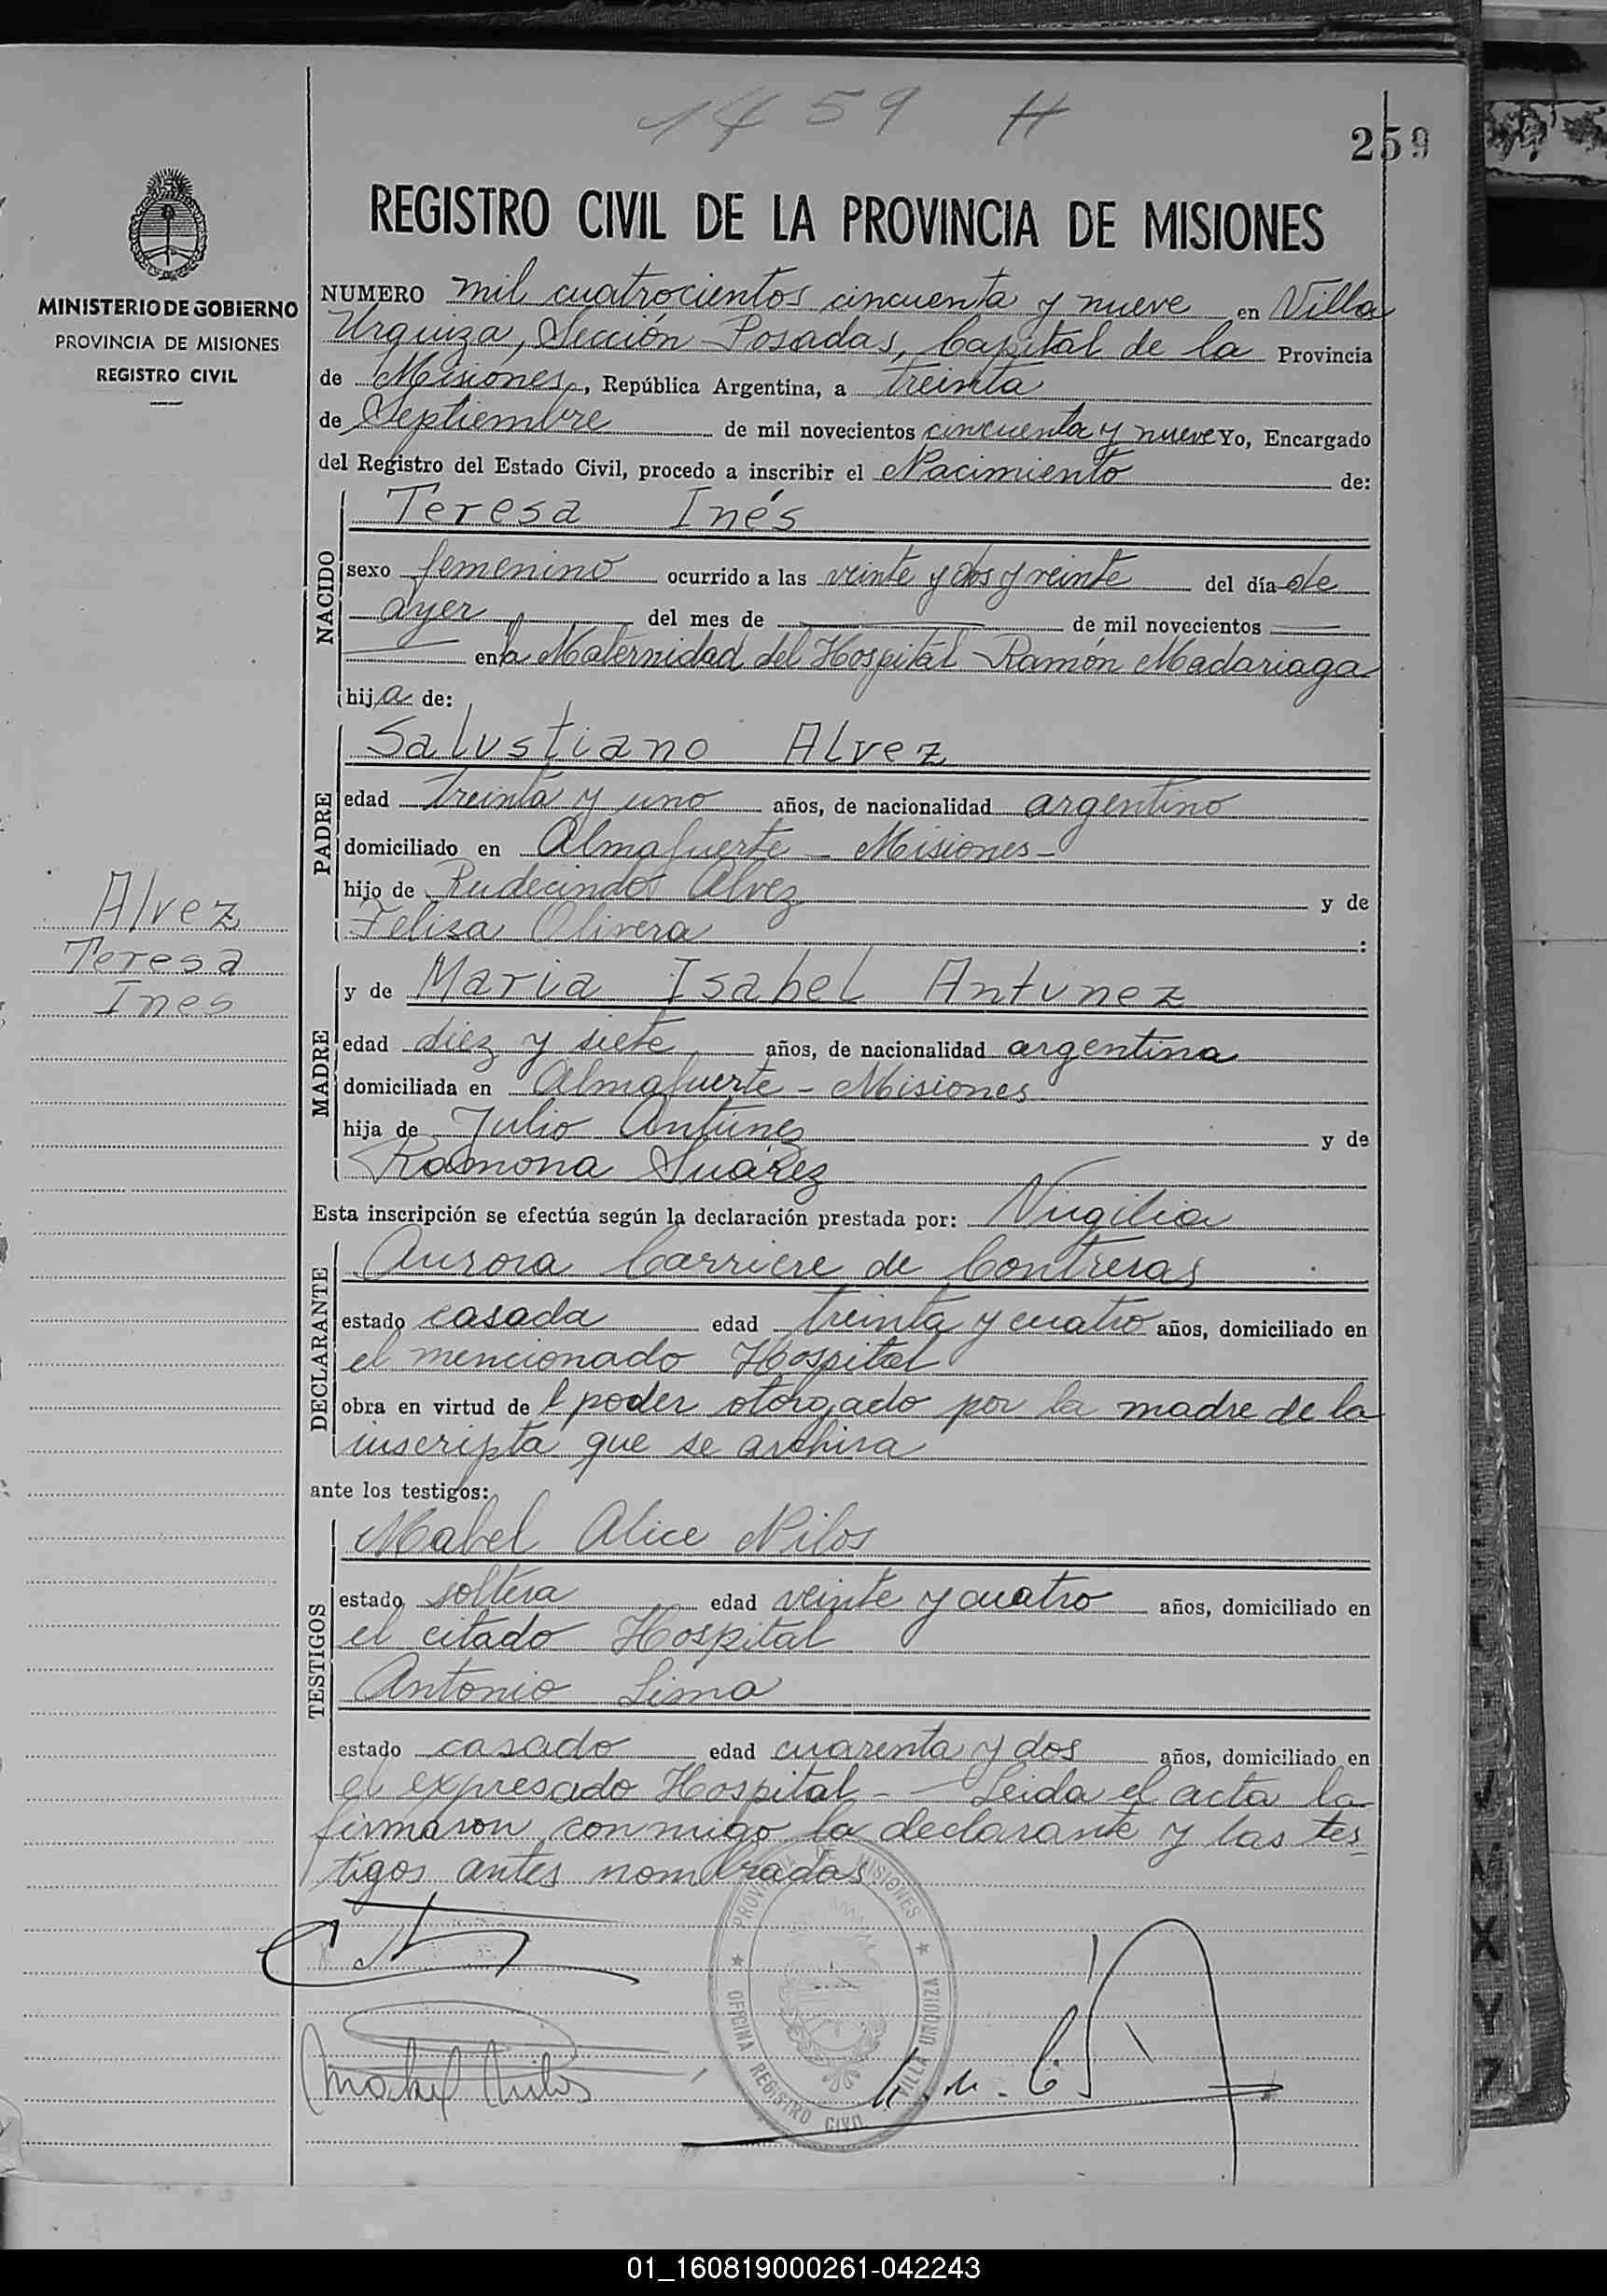 1459 H
259
REGISTRO CIVIL DE LA PROVINCIA DE MISIONES
MINISTERIO DE GOBIERNO
PROVINCIA DE MISIONES
REGISTRO CIVIL
NUMERO mil cuatrocientos cincuenta y nueve en Villa
Urquiza, Sección Posadas, Capital de la Provincia
de Misiones, República Argentina, a treinta
de Septiembre de mil novecientos cincuenta y nueve Yo, Encargado
del Registro del Estado Civil, procedo a inscribir el Nacimiento de:
NACIDO
Teresa Inés
sexo femenino ocurrido a las veinte y dos y veinte del día de
ayer del mes de de mil novecientos
en la Maternidad del Hospital Ramón Madariaga
hija de:
PADRE
Salustiano Alvez
edad treinta y uno años, de nacionalidad argentino
domiciliado en Almafuerte - Misiones -
hijo de Rudecindo Alvez y de
Felisa Olivera :
Alvez
Teresa
Ines
MADRE
y de Maria Isabel Antunez
edad diez y siete años, de nacionalidad argentina
domiciliada en Almafuerte - Misiones
hija de Julio Antúnez y de
Ramona Suárez
Esta inscripción se efectúa según la declaración prestada por: Virgilia
DECLARANTE
Aurora Carriere de Contreras
estado casada edad treinta y cuatro años, domiciliado en
el mencionado Hospital
obra en virtud de l poder otorgado por la madre de la
inscripta que se archiva
ante los testigos:
TESTIGOS
Mabel Alice Nilos
estado soltera edad veinte y cuatro años, domiciliado en
el citado Hospital
Antonio Lima
estado casado edad cuarenta y dos años, domiciliado en
el expresado Hospital - Leida el acta la
firmaron conmigo la declarante y las tes
tigos antes nombradas
PROVINCIA DE MISIONES
OFICINA REGISTRO CIVIL VILLA URQUIZA
Mabel Nilos
01_160819000261-042243